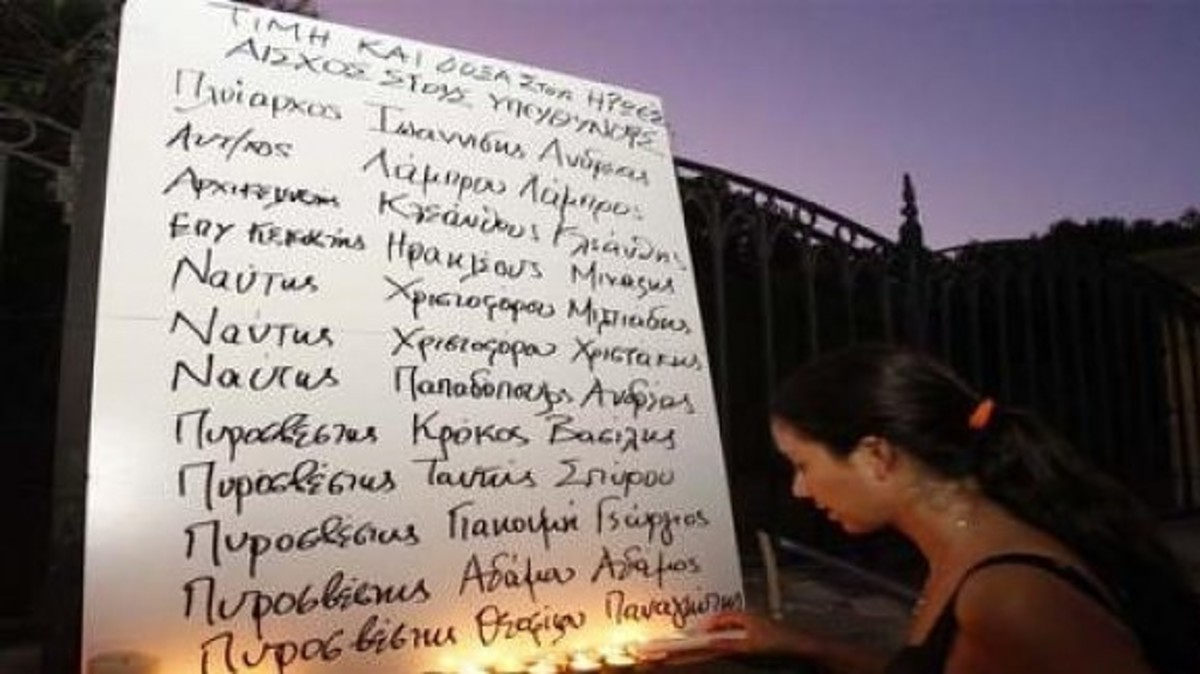 ΤΙΜΗ ΚΑΙ ΔΟΞΑ ΣΤΟΥΣ ΗΡΩΕΣ
ΑΙΣΧΟΣ ΣΤΟΥΣ ΥΠΕΥΘΥΝΟΥΣ
Πλοίαρχος Ιωαννίδης Ανδρέας
Αντ/κος Λάμπρου Λάμπρος
Κλεάνθους Κλεάνθης
Ηρακλέους Μιχάλης
Ναύτης Χριστοφόρου Μιλτιάδης
Ναύτης Χριστοφόρου Χριστάκης
Ναύτης Παπαδόπουλος Ανδρέας
Πυροσβέστης Κρόκος Βασίλης
Πυροσβέστης Ταντής Σπύρου
Πυροσβέστης Γιακουμή Γεώργιος
Πυροσβέστης Αδάμου Αδάμος
Πυροσβέστης Θεοφίλου Παναγιώτης